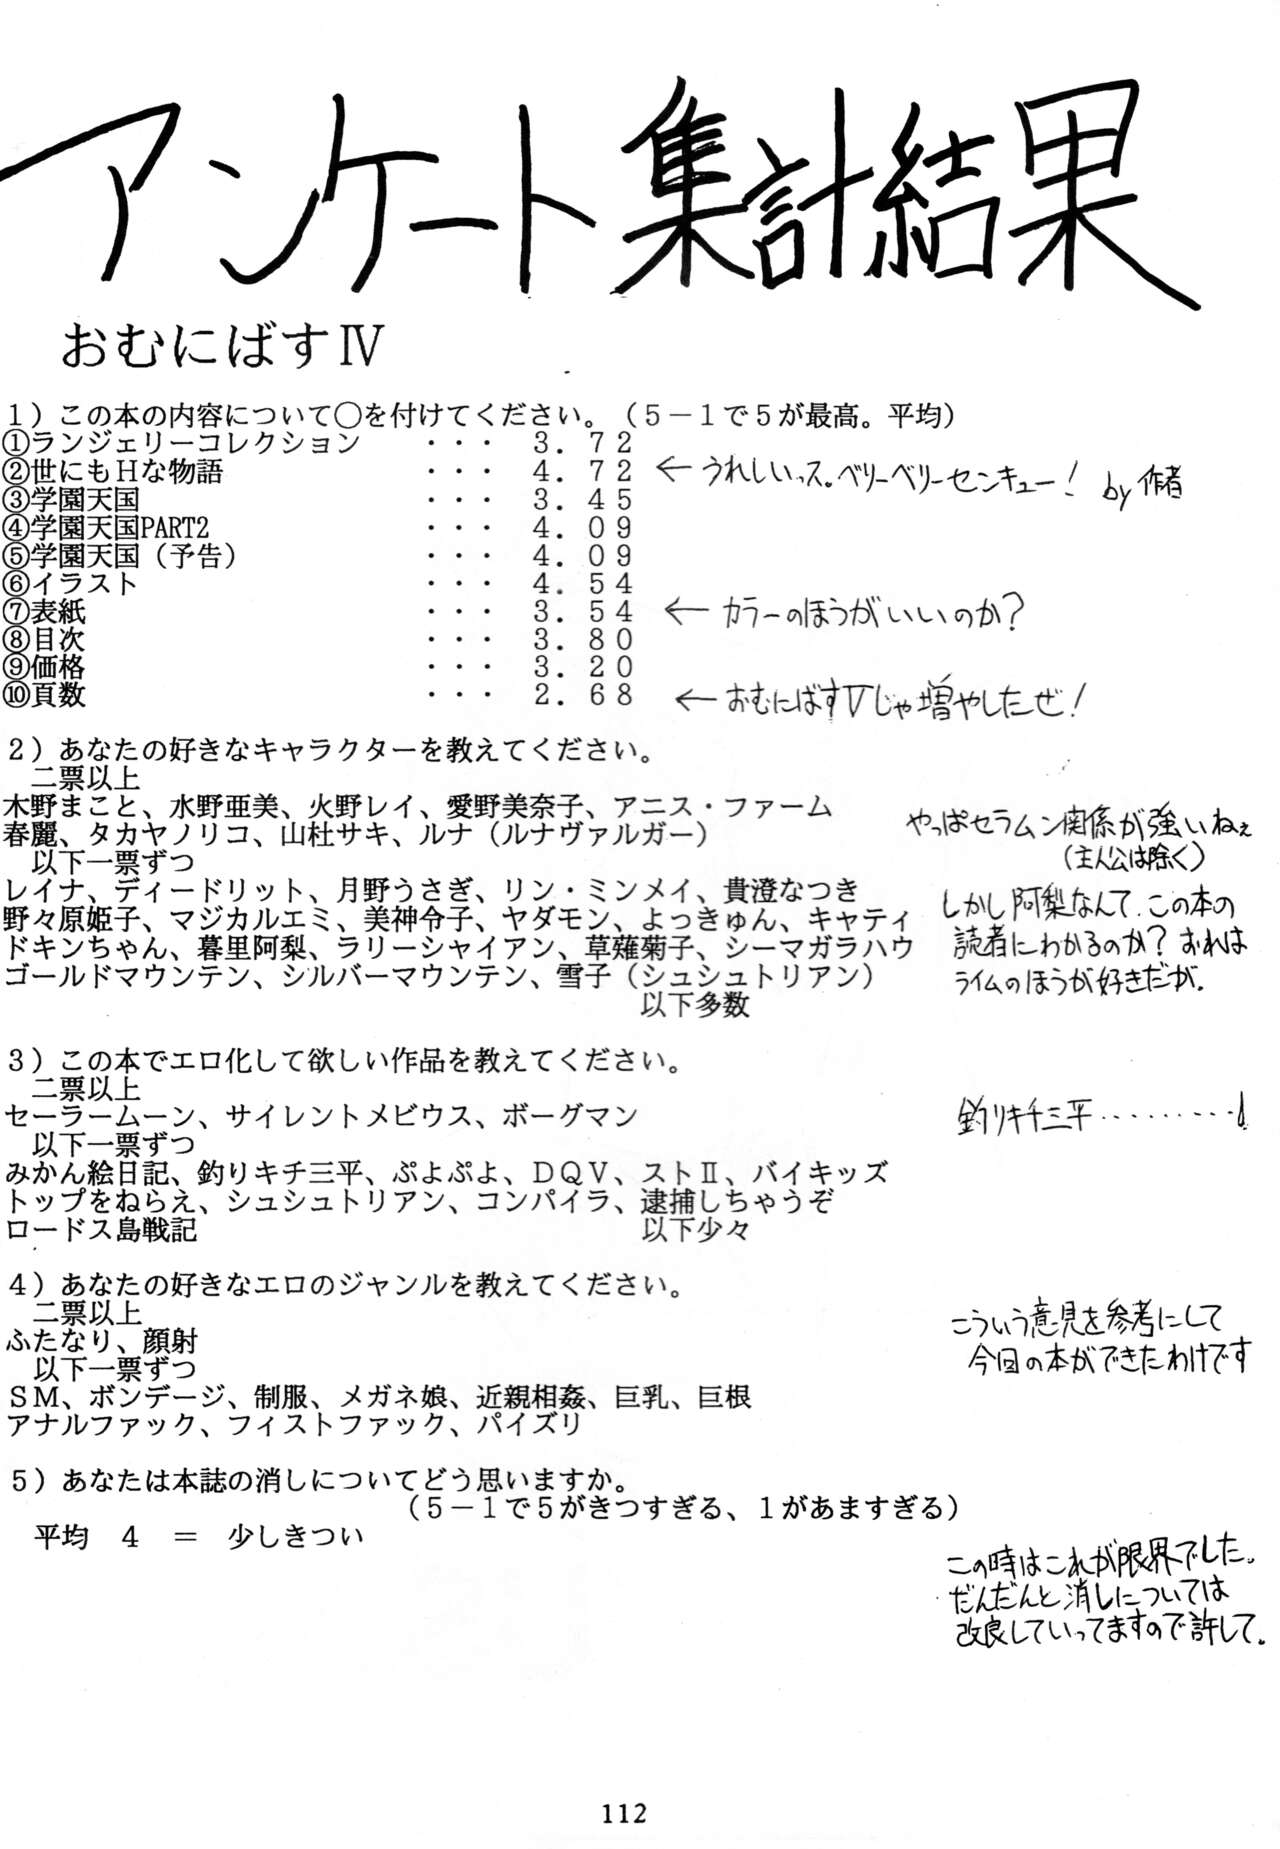 アンケート集計結果
おむにばすⅣ
1）この本の内容について○を付けてください。（5－1で5が最高。平均）
①ランジェリーコレクション ・・・ 3．72
②世にもHな物語 ・・・ 4．72 ←うれしいっス。ベリーベリーセンキュー！ by 作者
③学園天国 ・・・ 3．45
④学園天国PART2 ・・・ 4．09
⑤学園天国（予告） ・・・ 4．09
⑥イラスト ・・・ 4．54
⑦表紙 ・・・ 3．54 ← カラーのほうがいいのか？
⑧目次 ・・・ 3．80
⑨価格 ・・・ 3．20
⑩頁数 ・・・ 2．68 ←おむにばすⅤじゃ増やしたぜ！
2）あなたの好きなキャラクターを教えてください。
二票以上
木野まこと、水野亜美、火野レイ、愛野美奈子、アニス・ファーム
春麗、タカヤノリコ、山杜サキ、ルナ（ルナヴァルガー）
以下一票ずつ
レイナ、ディードリット、月野うさぎ、リン・ミンメイ、貴澄なつき
野々原姫子、マジカルエミ、美神令子、ヤダモン、よっきゅん、キャティ
ドキンちゃん、暮里阿梨、ラリーシャイアン、草薙菊子、シーマガラハウ
ゴールドマウンテン、シルバーマウンテン、雪子（シュシュトリアン）
以下多数
やっぱセラムン関係が強いねぇ
（主人公は除く）
しかし阿梨なんて、この本の
読者にわかるのか？おれは
ライムのほうが好きだが。
3）この本でエロ化して欲しい作品を教えてください。
二票以上
セーラームーン、サイレントメビウス、ボーグマン
以下一票ずつ
みかん絵日記、釣りキチ三平、ぷよぷよ、DQV、ストⅡ、バイキッズ
トップをねらえ、シュシュトリアン、コンパイラ、逮捕しちゃうぞ
ロードス島戦記 以下少々
釣りキチ三平………！
4）あなたの好きなエロのジャンルを教えてください。
二票以上
ふたなり、顔射
以下一票ずつ
SM、ボンデージ、制服、メガネ娘、近親相姦、巨乳、巨根
アナルファック、フィストファック、パイズリ
こういう意見を参考にして
今回の本ができたわけです
5）あなたは本誌の消しについてどう思いますか。
（5－1で5がきつすぎる、1があますぎる）
平均 4 ＝ 少しきつい
この時はこれが限界でした。
だんだんと消しについては
改良していってますので許して。
112